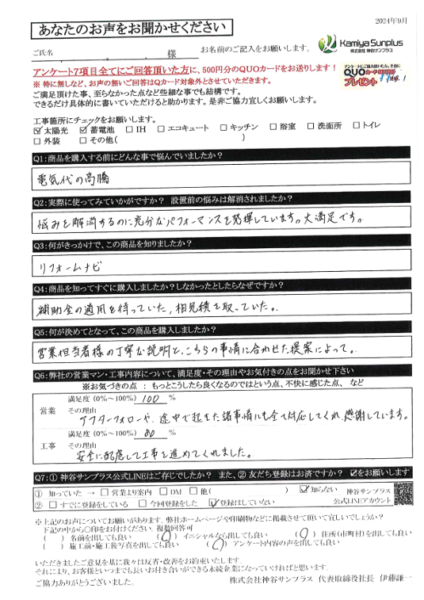 あなたのお声をお聞かせください
2024年9月
ご氏名 様 お名前のご記入をお願いします。
Kamiya Sunplus
株式会社 神谷サンプラス
アンケート7項目全てにご回答頂いた方に、500円分のQUOカードをお送りします!
QUOカード
プレゼント
※ 特に無しなど、お声の無いご回答はQカード対象外とさせていただきます。
ご満足頂けた事、至らなかった点など些細な事でも結構です。
できるだけ具体的に書いていただけると助かります。是非ご協力宜しくお願いします。
工事箇所にチェックをお願いします。
☑ 太陽光 ☑ 蓄電池 □ IH □ エコキュート □ キッチン □ 浴室 □ 洗面所 □ トイレ
□ 外装 □ その他( )
Q1:商品を購入する前にどんな事で悩んでいましたか?
電気代の高騰
Q2:実際に使ってみていかがですか? 設置前の悩みは解消されましたか?
悩みを解消するのに充分なパフォーマンスを発揮しています。大満足です。
Q3:何がきっかけで、この商品を知りましたか?
リフォームナビ
Q4:商品を知ってすぐに購入しましたか?しなかったとしたらなぜですか?
補助金の適用を待っていた。相見積を取っていた。
Q5:何が決めてとなって、この商品を購入しましたか?
営業担当者様の丁寧な説明と、こちらの事情に合わせた提案によって。
Q6:弊社の営業マン・工事内容について、満足度・その理由やお気付きの点をお聞かせ下さい
※お気づきの点 : もっとこうしたら良くなるのではという点、不快に感じた点、など
満足度(0%~100%) 100 %
営業 その理由
アフターフォローや、途中で起きた諸事情にも全て対応してくれ、感謝しています。
満足度(0%~100%) 80 %
工事 その理由
安全に配慮して工事を進めてくれました。
Q7:① 神谷サンプラス公式LINEはご存じでしたか? また、② 友だち登録はお済ですか? ☑をお願いします
① 知っていた → □ 営業より案内 □ DM □ 他( ) ☑ 知らない
② □ すでに登録をしている □ 今回登録をした ☑ 登録はしていない
神谷サンプラス
公式LINEアカウント
※上記のお声についてお願いがあります。弊社ホームページや印刷物などに掲載させて頂いて宜しいでしょうか?
下記の中から○印をお付けください。複数回答可
( ) 名前を出しても良い (○) イニシャルなら出しても良い ( ) 住所(市町村)を出しても良い
( ) 施工前・施工後写真を出しても良い (○) アンケート内容の声を出しても良い
いただきましたご意見を基に我々は反省・改善をお約束いたします。
それにより、お客様といつまでも長いお付き合いができる永続企業になっていければと思います。
ご協力ありがとうございました。 株式会社神谷サンプラス 代表取締役社長 伊藤謙一